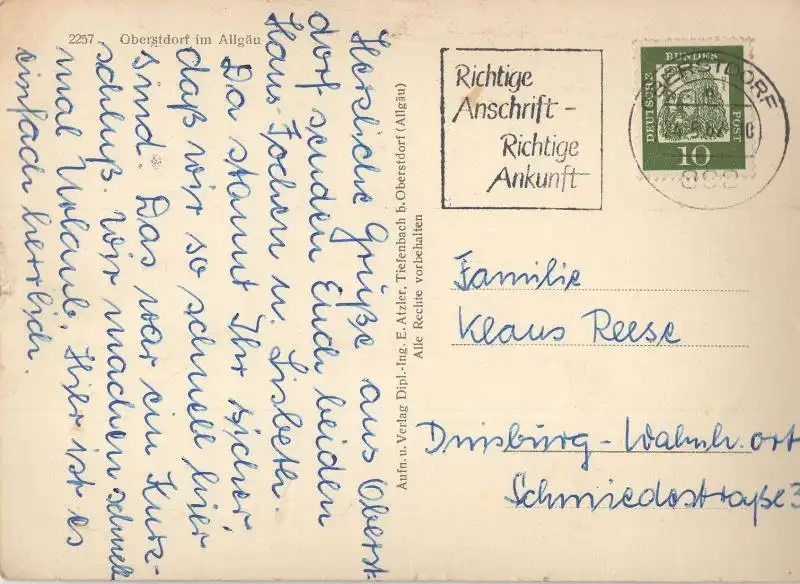 2257 Oberstdorf im Allgäu
Herzliche Grüße aus Oberst-
dorf senden Euch beiden
Hans-Jochen u. Lisbeth.
Da staunt Ihr sicher
daß wir so schnell hier
sind. Das war ein Kurz-
schluß. Wir machen schnell
mal Urlaub. Hier ist es
einfach herrlich.
Aufn. u. Verlag Dipl.-Ing. E. Atzler, Tiefenbach b. Oberstdorf (Allgäu)
Alle Rechte vorbehalten
Richtige
Anschrift -
Richtige
Ankunft
OBERSTDORF
DEUTSCHE BUNDESPOST
10
Familie
Klaus Reese
Duisburg-Wanh. ort
Schmiedestraße 3